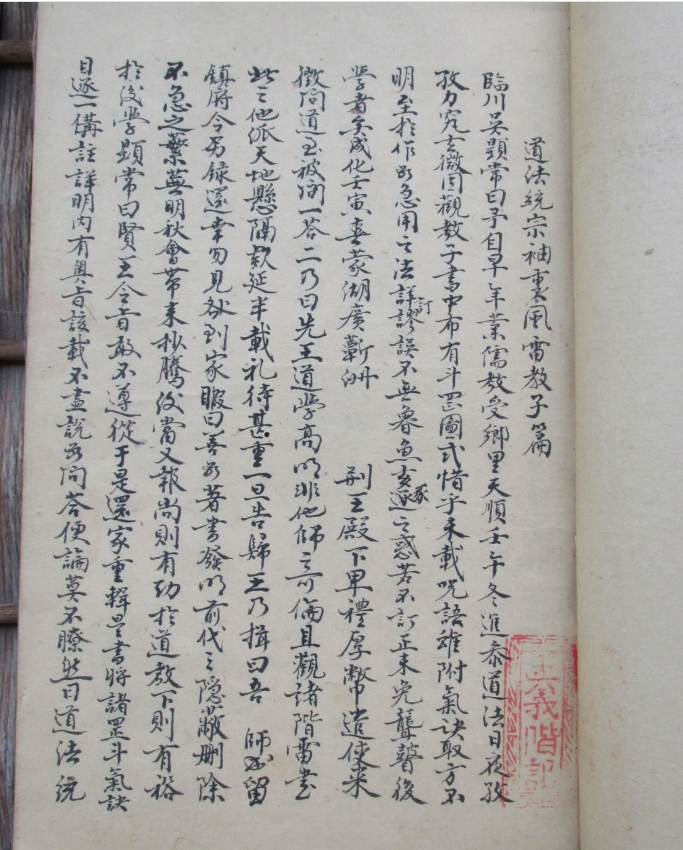 道法統宗袖裏風雷教子篇
臨川吳顯常曰予自早年業儒教受鄉里天順壬午冬進參道法日夜孜
孜力究玄微因觀教子書中布有斗罡圖式惜乎未載咒語雖附氣訣取方不
明至於作亟急用之法詳訂謬誤不無魯魚亥豕之惑若不訂正未免聾瞽後
學者矣成化壬寅喜蒙湖廣蘄州　荆王殿下卑禮厚幣遣使來
徵問道至被問一答二乃曰先王道學高明非他師之可倫且觀諸階雷書
此之他派天地懸隔欵延半載礼待甚重一旦告歸王乃揖曰吾　師不留
鎮府令另錄還幸勿見却到家暇日善為著書發明前代之隐蔽刪除
不急之蘩蕪明秋會帶來抄騰後當又報尚則有功於道教下則有裕
於後學顯常曰賢王令旨敢不遵從于是還家重輯是書將諸罡斗氣訣
目逐一備註詳明內有奧旨該載不盡說為問答便論莫不瞭然目道法統